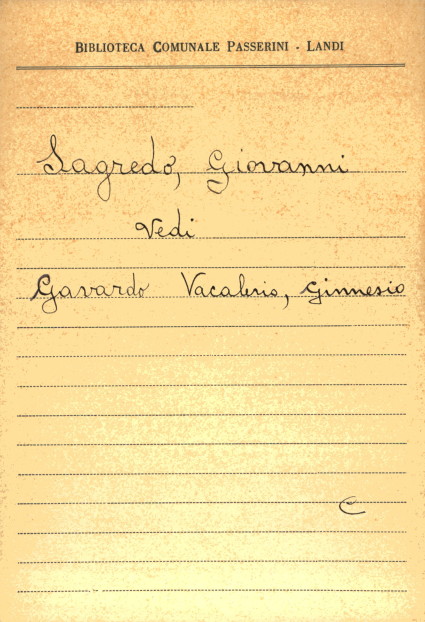 BIBLIOTECA COMUNALE PASSERINI - LANDI
Sagredo, Giovanni
Vedi
Gavardo Vacalerio, Ginnesio
C